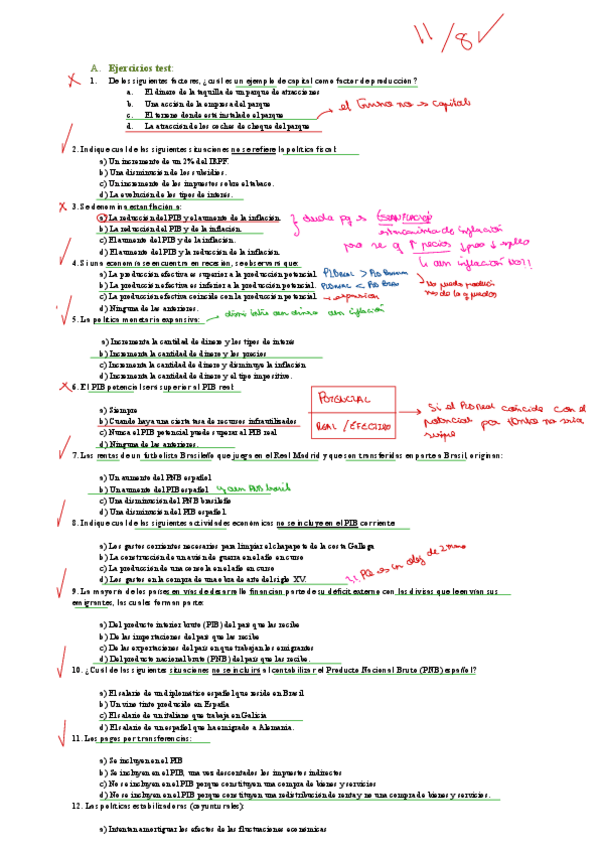 11/8✓
A. Ejercicios test:
1. De los siguientes factores, ¿cuál es un ejemplo de capital como factor de producción?
a. El dinero de la taquilla de un parque de atracciones
b. Una acción de la empresa del parque
c. El terreno donde está instalado el parque
el terreno no es capital
d. La atracción de los coches de choque del parque
2. Indique cual de las siguientes situaciones no se refiere la política fiscal:
a) Un incremento de un 2% del IRPF.
b) Una disminución de los subsidios.
c) Un incremento de los impuestos sobre el tabaco.
d) La evolución de los tipos de interés.
3. Se denomina estanflación a:
a) La reducción del PIB y el aumento de la inflación.
b) La reducción del PIB y de la inflación.
c) El aumento del PIB y de la inflación.
d) El aumento del PIB y la reducción de la inflación.
4. Si una economía se encuentra en recesión, se observará que:
a) La producción efectiva es superior a la producción potencial.
b) La producción efectiva es inferior a la producción potencial.
c) La producción efectiva coincide con la producción potencial.
expansión
d) Ninguna de las anteriores.
5. La política monetaria expansiva:
a) Incrementa la cantidad de dinero y los tipos de interés
b) Incrementa la cantidad de dinero y los precios
c) Incrementa la cantidad de dinero y disminuye la inflación
d) Incrementa la cantidad de dinero y el tipo impositivo.
6. El PIB potencial será superior al PIB real:
POTENCIAL
REAL / EFECTIVO
a) Siempre
b) Cuando haya una cierta tasa de recursos infrautilizados
c) Nunca el PIB potencial puede superar al PIB real
d) Ninguna de las anteriores.
Si el PIB real coincide con el
potencial por tanto no sería
7. Las rentas de un futbolista Brasileño que juega en el Real Madrid y que son transferidas en parte a Brasil, originan:
a) Un aumento del PNB español
b) Un aumento del PIB español
c) Una disminución del PNB brasileño
d) Una disminución del PIB español.
8. Indique cual de las siguientes actividades económicas no se incluye en el PIB corriente:
a) Los gastos corrientes necesarios para limpiar el chapapote de la costa Gallega
b) La construcción de un avión de guerra en el año en curso
c) La producción de una consola en el año en curso
d) Los gastos en la compra de una obra de arte del siglo XV.
9. La mayoría de los países en vías de desarrollo financian parte de su déficit externo con las divisas que le envían sus
emigrantes, las cuales forman parte:
a) Del producto interior bruto (PIB) del país que las recibe
b) De las importaciones del país que las recibe
c) De las exportaciones del país en que trabajan los emigrantes
d) Del producto nacional bruto (PNB) del país que las recibe.
10. ¿Cuál de las siguientes situaciones no se incluirá al contabilizar el Producto Nacional Bruto (PNB) español?
a) El salario de un diplomático español que reside en Brasil
b) Un vino tinto producido en España
c) El salario de un italiano que trabaja en Galicia
d) El salario de un español que ha emigrado a Alemania.
11. Los pagos por transferencias:
a) Se incluyen en el PIB
b) Se incluyen en el PIB, una vez descontados los impuestos indirectos
c) No se incluyen en el PIB porque constituyen una compra de bienes y servicios
d) No se incluyen en el PIB porque constituyen una redistribución de renta y no una compra de bienes y servicios.
12. Las políticas estabilizadoras (coyunturales):
a) Intentan amortiguar los efectos de las fluctuaciones económicas